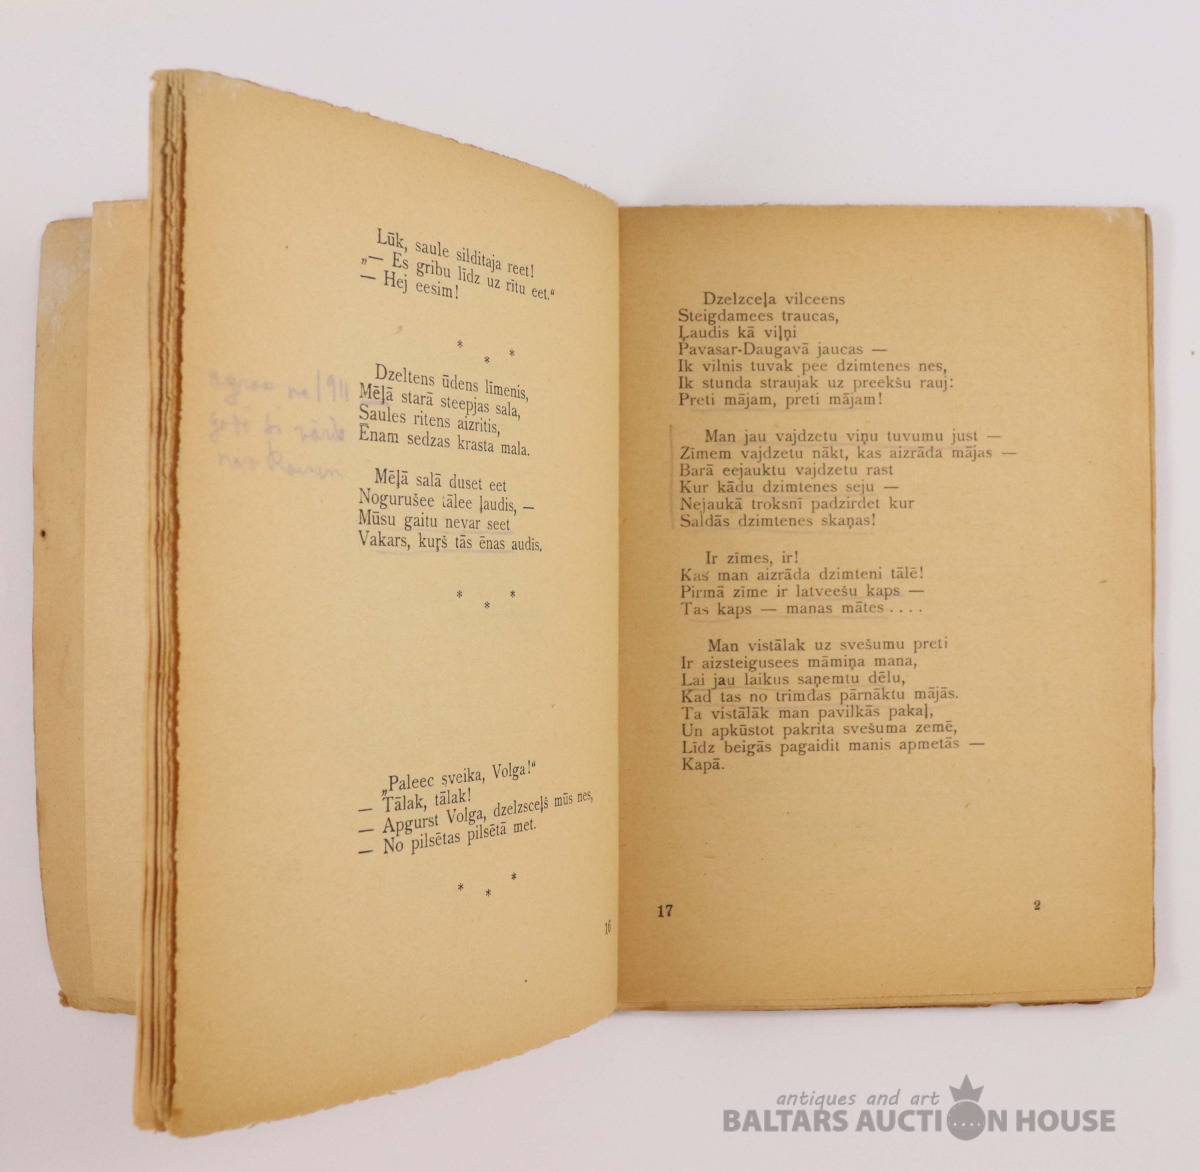 Lūk, saule silditaja reet!
„— Es gribu līdz uz rītu eet.“
— Hej eesim!
* * *
Dzeltens ūdens līmenis,
Mēļā starā steepjas sala,
Saules ritens aizritis,
Ēnam sedzas krasta mala.
Mēļā salā duset eet
Nogurušee tālee ļaudis, —
Mūsu gaitu nevar seet
Vakars, kuŗš tās ēnas audis.
* * *
„Paleec sveika, Volga!“
— Tālak, tālak!
— Apgurst Volga, dzelzsceļš mūs nes,
— No pilsētas pilsētā met.
* * *
16
Dzelzceļa vilceens
Steigdamees traucas,
Ļaudis kā viļņi
Pavasar-Daugavā jaucas —
Ik vilnis tuvak pee dzimtenes nes,
Ik stunda straujak uz preekšu rauj:
Preti mājam, preti mājam!
Man jau vajdzetu viņu tuvumu just —
Zīmem vajdzetu nākt, kas aizrāda mājas —
Barā eejauktu vajdzetu rast
Kur kādu dzimtenes seju —
Nejaukā troksnī padzirdet kur
Saldās dzimtenes skaņas!
Ir zīmes, ir!
Kas man aizrāda dzimteni tālē!
Pirmā zīme ir latveešu kaps —
Tas kaps — manas mātes . . . .
Man vistālak uz svešumu preti
Ir aizsteigusees māmiņa mana,
Lai jau laikus saņemtu dēlu,
Kad tas no trimdas pārnāktu mājās.
Ta vistālāk man pavilkās pakaļ,
Un apkūstot pakrita svešuma zemē,
Līdz beigās pagaidit manis apmetās —
Kapā.
17 2
antiques and art
BALTARS AUCTION HOUSE